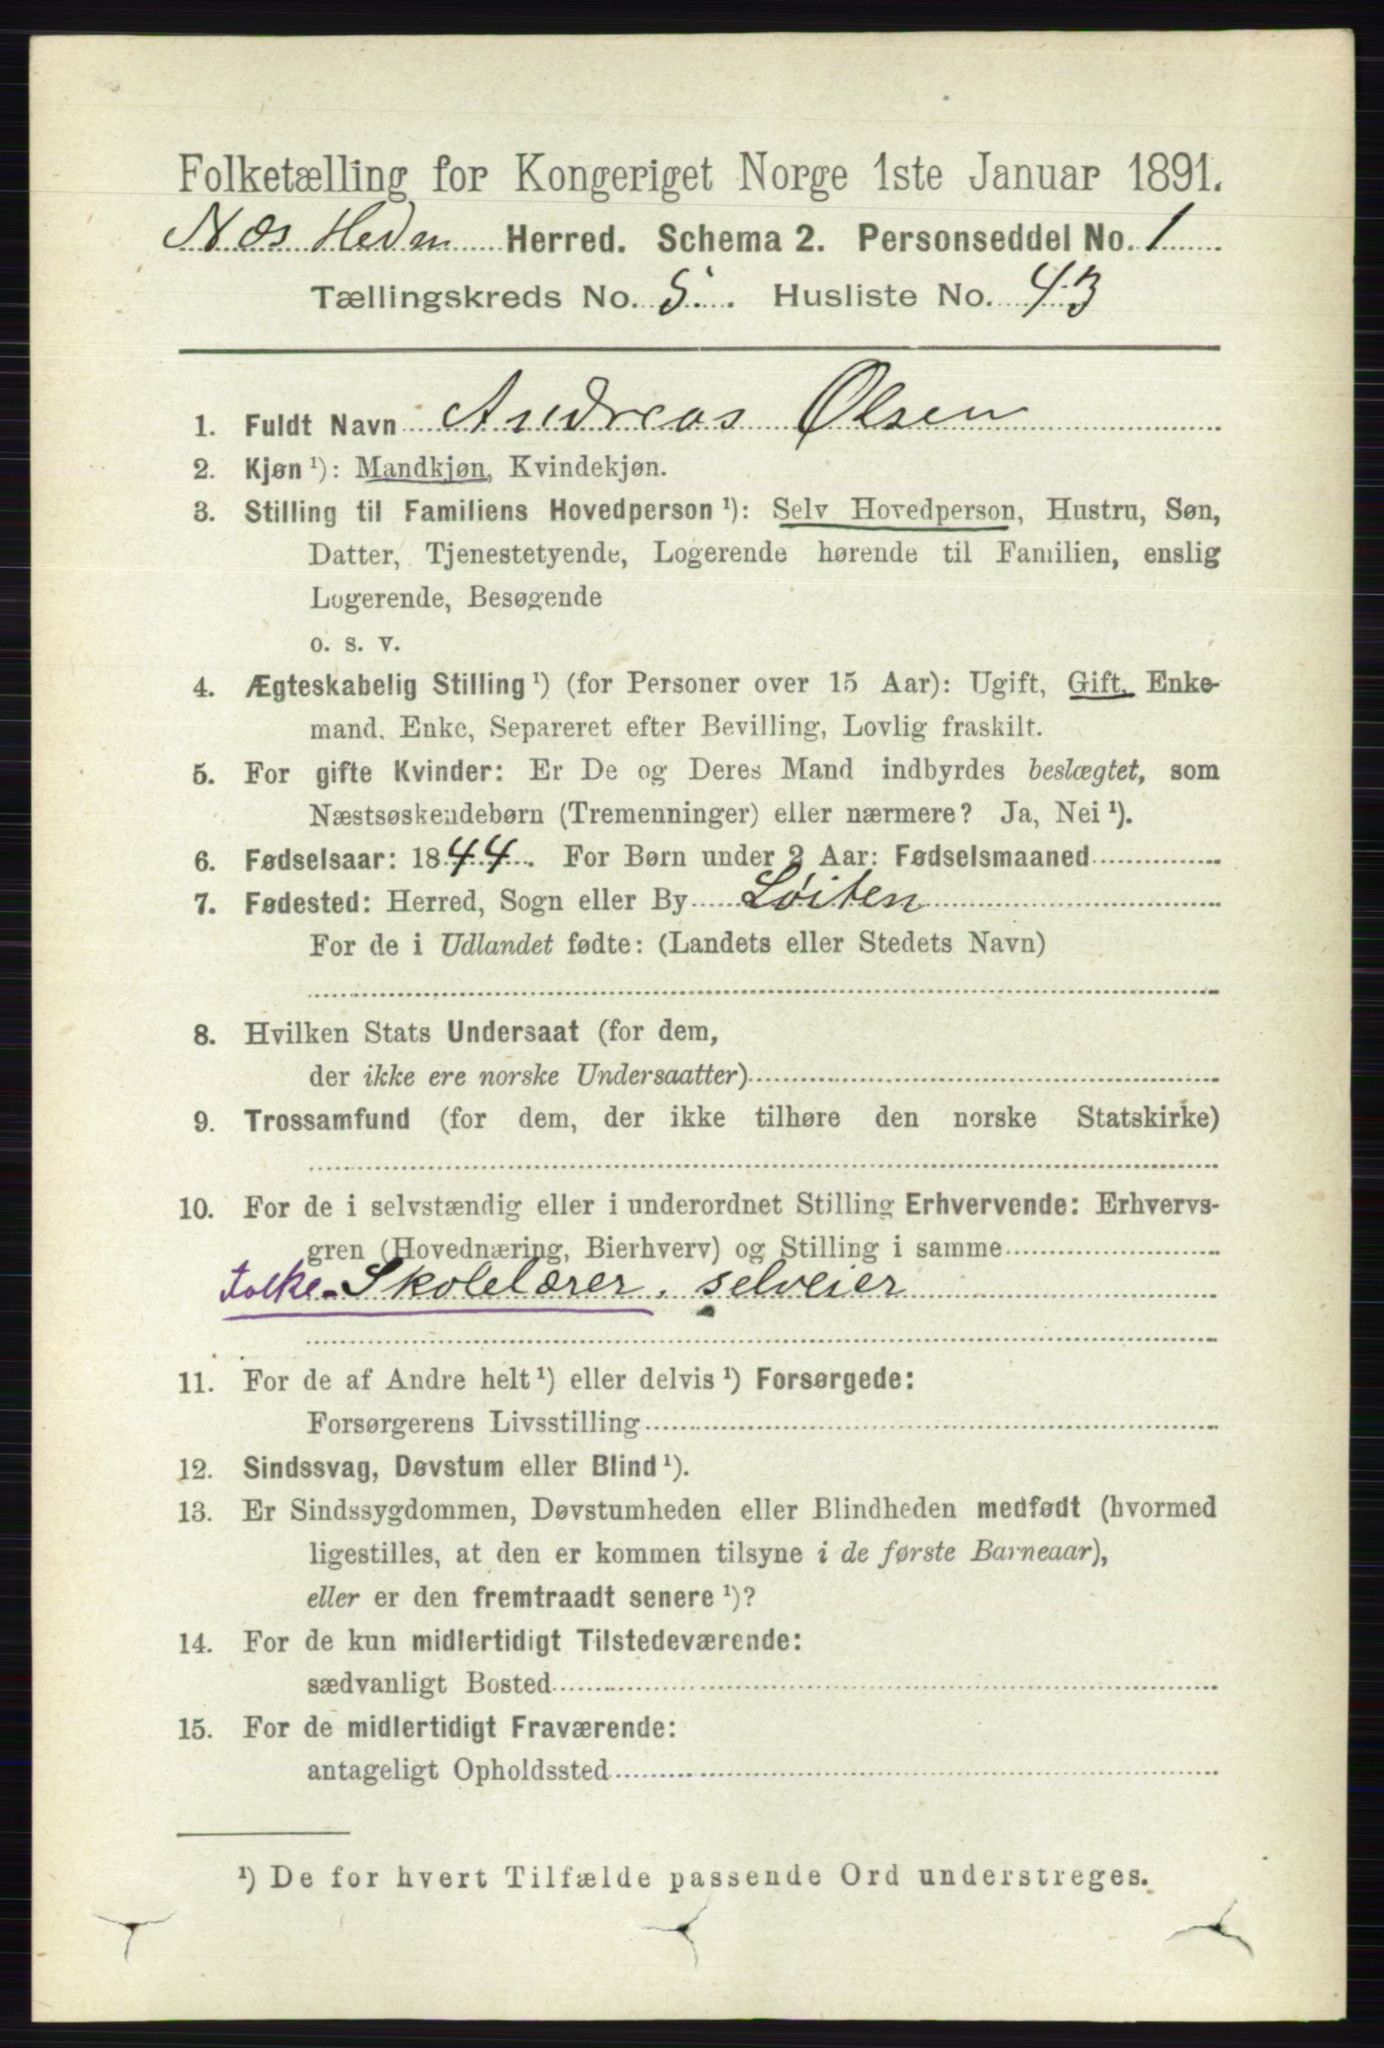 Folketælling for Kongeriget Norge 1ste Januar 1891.
Næs Hedm Herred. Schema 2. Personseddel No. 1
Tællingskreds No. 5. Husliste No. 43
1. Fuldt Navn Andreas Olsen
2. Kjøn ¹): Mandkjøn, Kvindekjøn.
3. Stilling til Familiens Hovedperson ¹): Selv Hovedperson, Hustru, Søn,
Datter, Tjenestetyende, Logerende hørende til Familien, enslig
Logerende, Besøgende
o. s. v.
4. Ægteskabelig Stilling ¹) (for Personer over 15 Aar): Ugift, Gift, Enke-
mand, Enke, Separeret efter Bevilling, Lovlig fraskilt.
5. For gifte Kvinder: Er De og Deres Mand indbyrdes beslægtet, som
Næstsøskendebørn (Tremenninger) eller nærmere? Ja, Nei ¹).
6. Fødselsaar: 1844. For Børn under 2 Aar: Fødselsmaaned
7. Fødested: Herred, Sogn eller By Løiten
For de i Udlandet fødte: (Landets eller Stedets Navn)
8. Hvilken Stats Undersaat (for dem,
der ikke ere norske Undersaatter)
9. Trossamfund (for dem, der ikke tilhøre den norske Statskirke)
10. For de i selvstændig eller i underordnet Stilling Erhvervende: Erhvervs-
gren (Hovednæring, Bierhverv) og Stilling i samme
Folke-Skolelærer. selveier
11. For de af Andre helt ¹) eller delvis ¹) Forsørgede:
Forsørgerens Livsstilling
12. Sindssvag, Døvstum eller Blind ¹).
13. Er Sindssygdommen, Døvstumheden eller Blindheden medfødt (hvormed
ligestilles, at den er kommen tilsyne i de første Barneaar),
eller er den fremtraadt senere ¹)?
14. For de kun midlertidigt Tilstedeværende:
sædvanligt Bosted
15. For de midlertidigt Fraværende:
antageligt Opholdssted
¹) De for hvert Tilfælde passende Ord understreges.